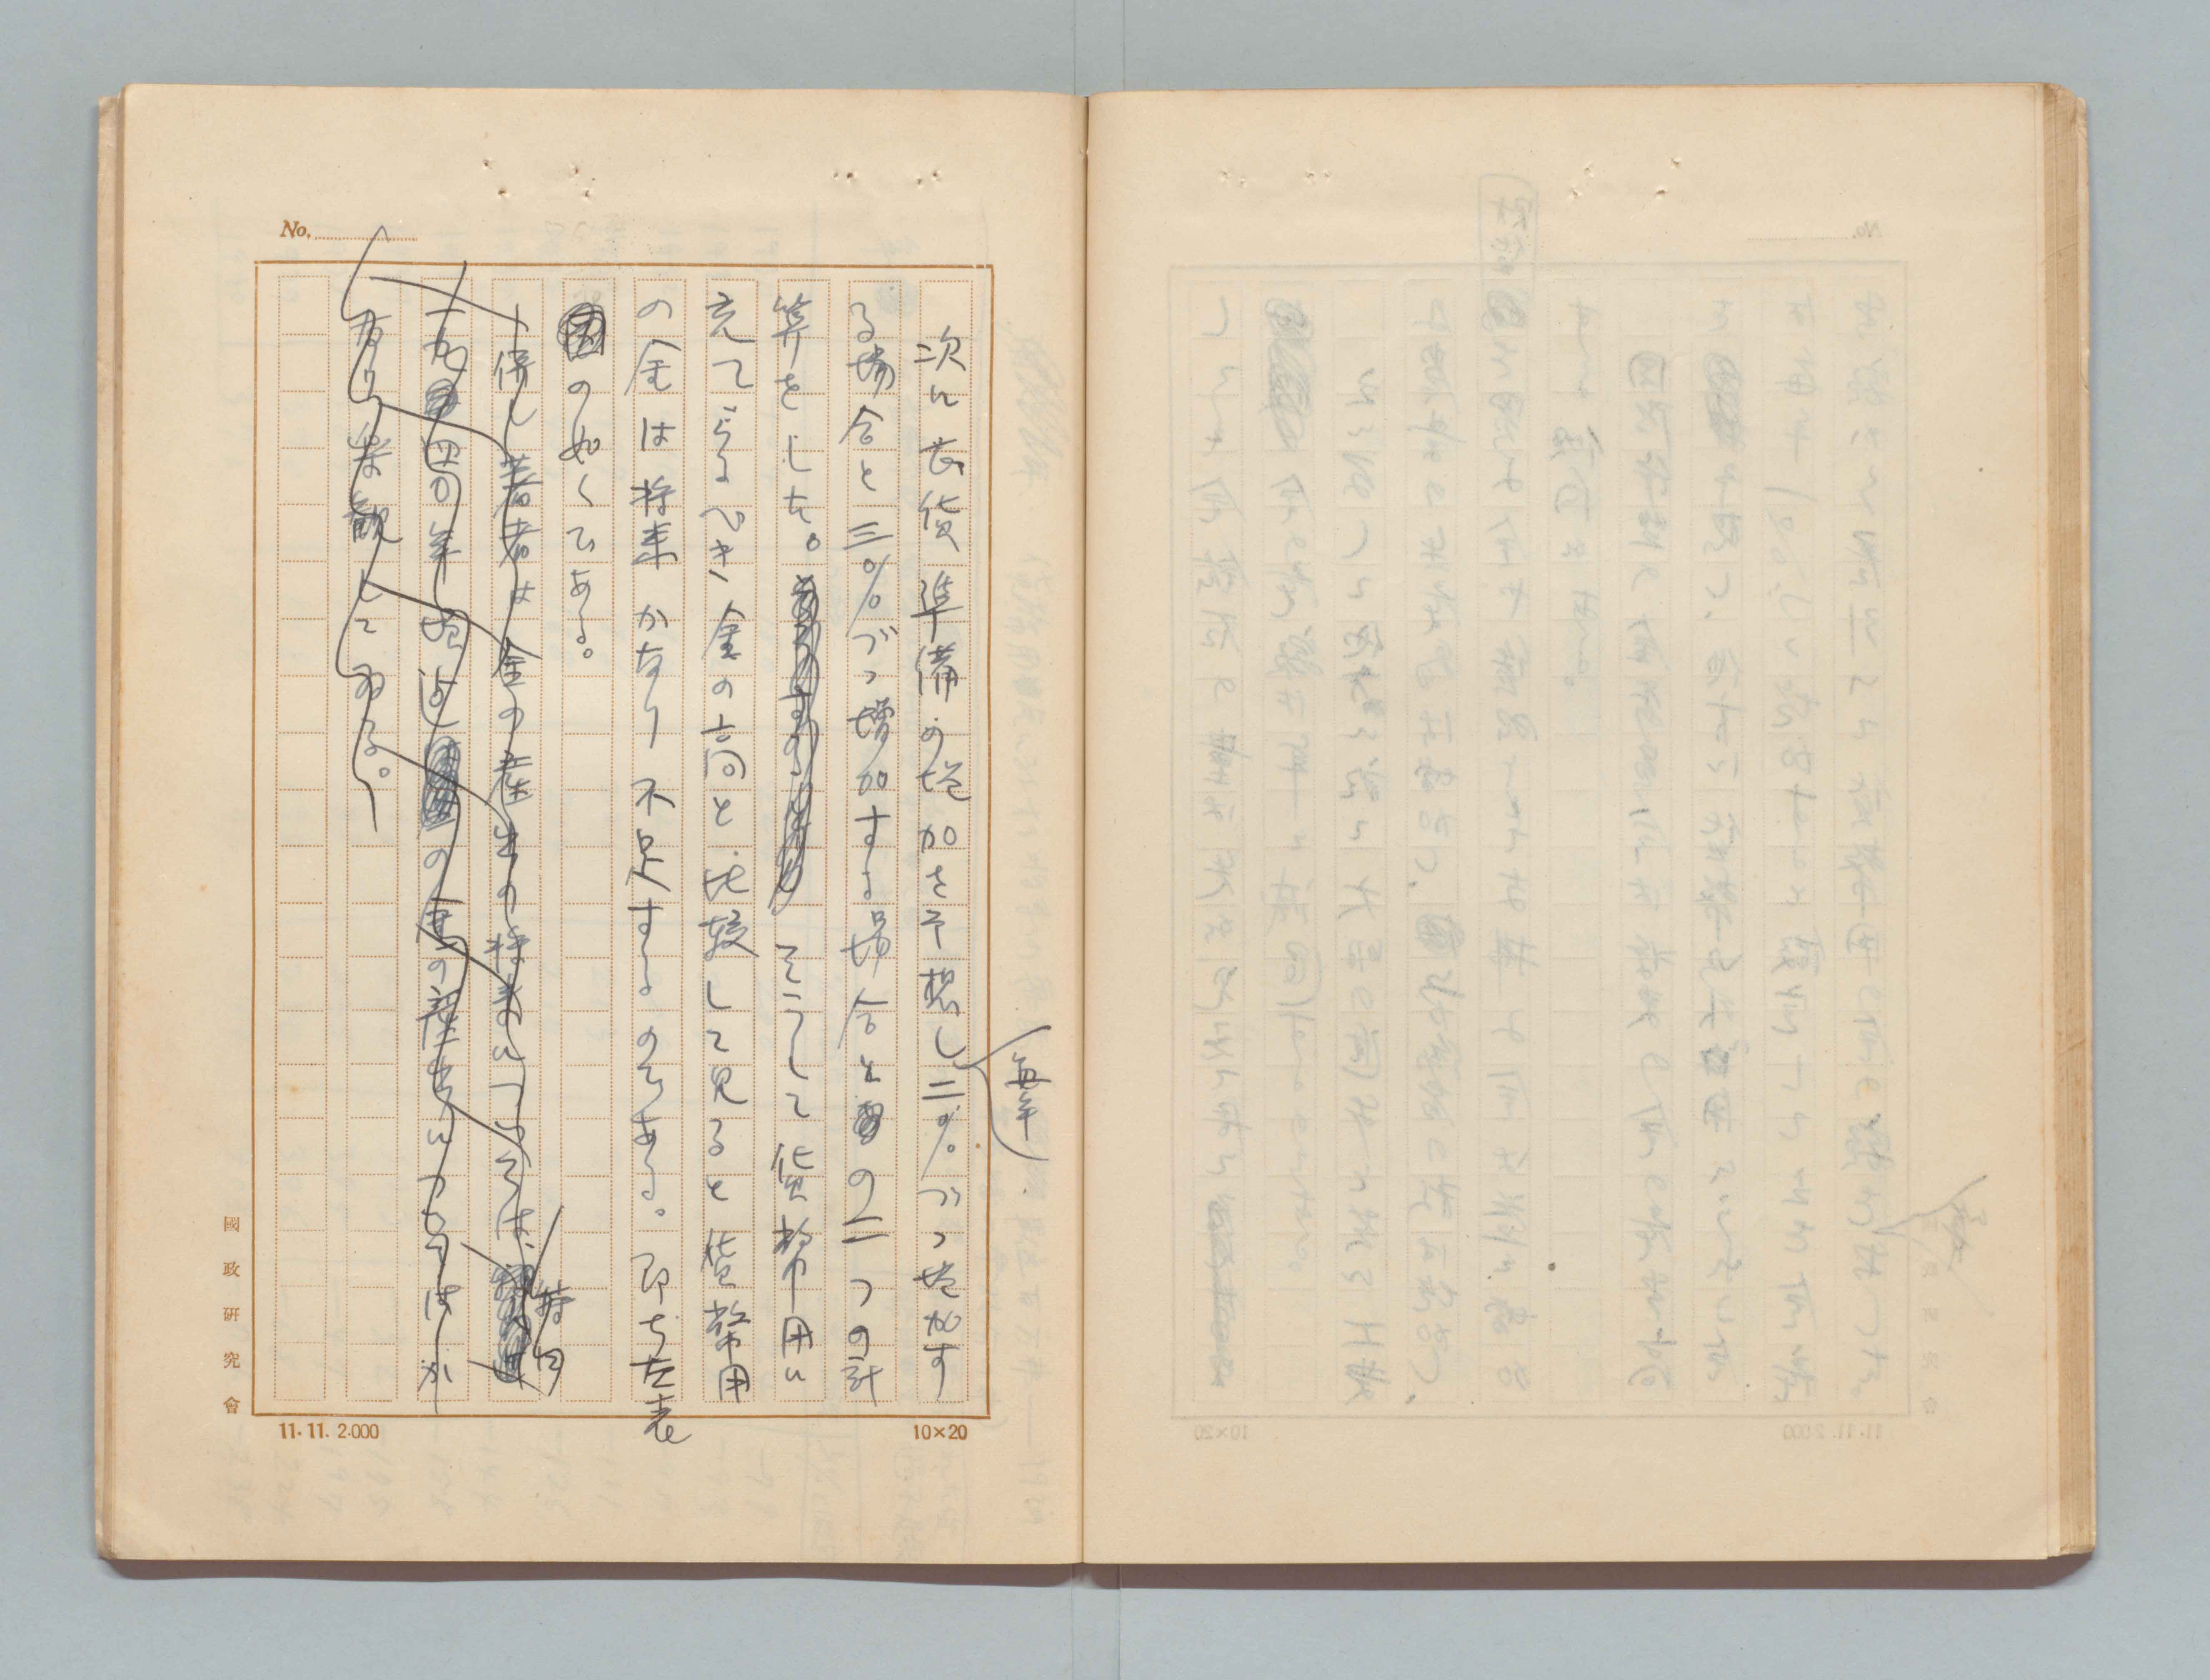 No.
次に長貨準備の増加を予想し二%づつ増加す
毎年
る場合と三%づつ増加する場合との二つの計
算をした。そうして貨幣用に
充てらるべき金の高と比較して見ると貨幣用
の金は将来かなり不足するのである。即ち左表
の如くである。
但し著者は金の産出の将来については、
特に
一九四〇年迄の金の産出については
なり楽観してゐる。
國政研究會
11.11. 2.000
10×20